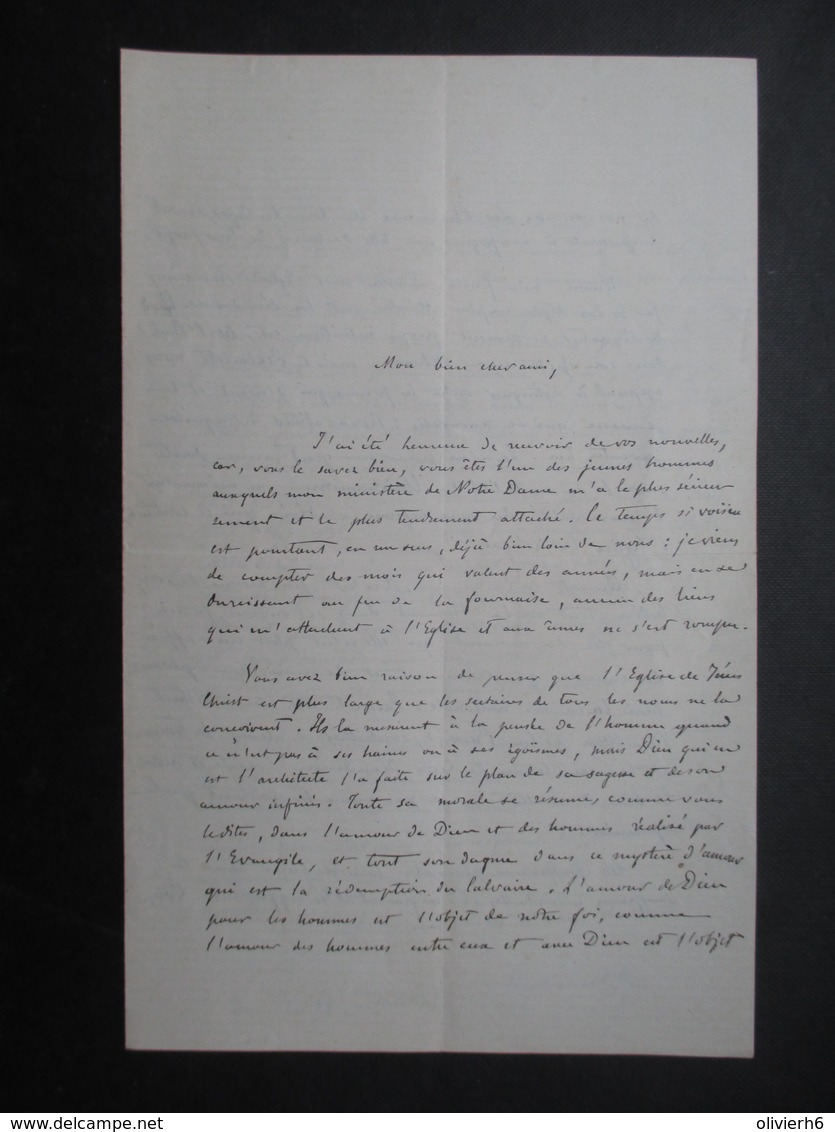 Mon bien cher ami,
J'ai été heureux de recevoir de vos nouvelles,
car, vous le savez bien, vous êtes l'un des jeunes hommes
auxquels mon ministère de Notre Dame m'a le plus sérieu
sement et le plus tendrement attaché. Ce temps si voisin
est pourtant, en un sens, déjà bien loin de nous : je viens
de compter des mois qui valent des années, mais en se
durcissant au feu de la fournaise, aucun des liens
qui m'attachent à l'Eglise et aux âmes ne s'est rompu.
Vous avez bien raison de penser que l'Eglise de Jésus
Christ est plus large que les sectaires de tous les noms ne la
conçoivent. Ils la mesurent à la pensée de l'homme quand
ce n'est pas à ses haines ou à ses égoïsmes, mais Dieu qui en
est l'architecte l'a faite sur le plan de sa sagesse et de son
amour infinis. Toute sa morale se résume, comme vous
le dites, dans l'amour de Dieu et des hommes réalisé par
l'Evangile, et tout son dogme dans ce mystère d'amour
qui est la rédemption du Calvaire. L'amour de Dieu
pour les hommes est l'objet de notre foi, comme
l'amour des hommes entre eux et avec Dieu est l'objet
delcampe.net
olivierh6